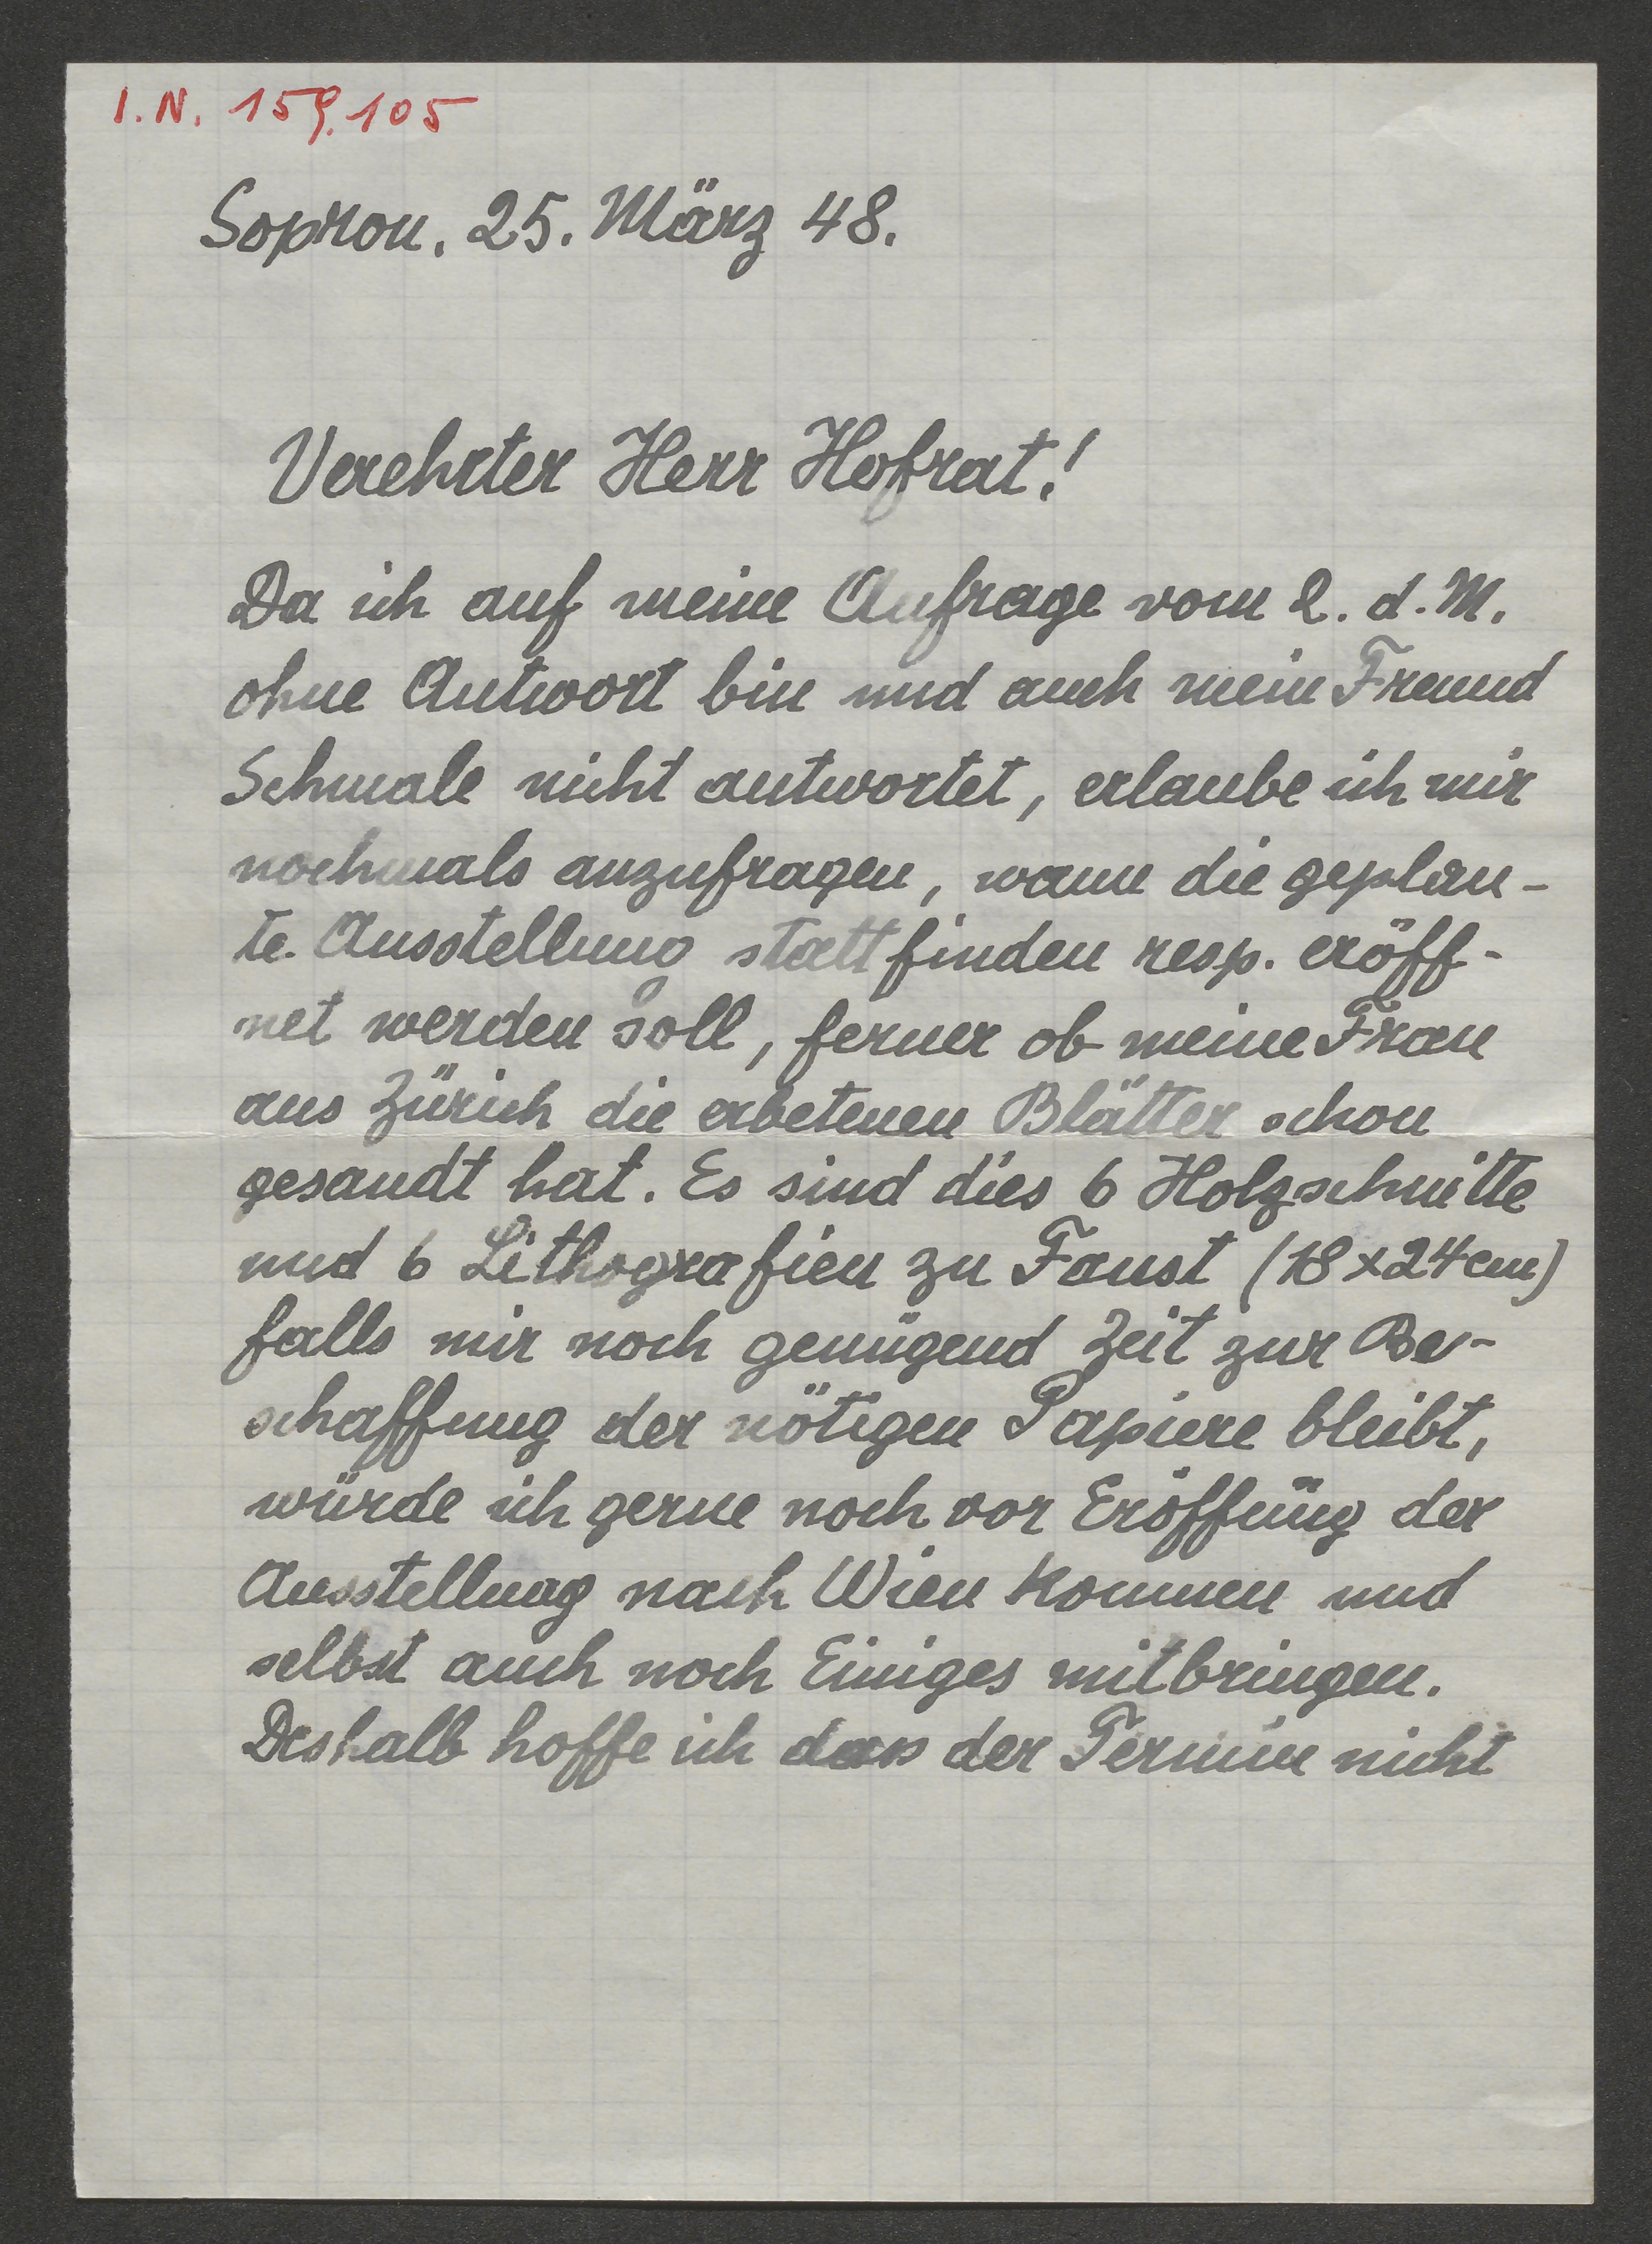 I.N. 159.105
Sopron. 25. März 48.
Verehrter Herr Hofrat!
Da ich auf meine Anfrage vom 2. d. M.
ohne Antwort bin und auch mein Freund
Schmale nicht antwortet, erlaube ich mir
nochmals anzufragen, wann die geplan-
te Ausstellung stattfinden resp. eröff-
net werden soll, ferner ob meine Frau
aus Zürich die erbetenen Blätter schon
gesandt hat. Es sind dies 6 Holzschnitte
und 6 Lithografien zu Faust (18×24cm)
falls mir noch genügend Zeit zur Be-
schaffung der nötigen Papiere bleibt,
würde ich gerne noch vor Eröffnüng der
Ausstellung nach Wien kommen und
selbst auch noch Einiges mitbringen.
Deshalb hoffe ich dass der Termin nicht